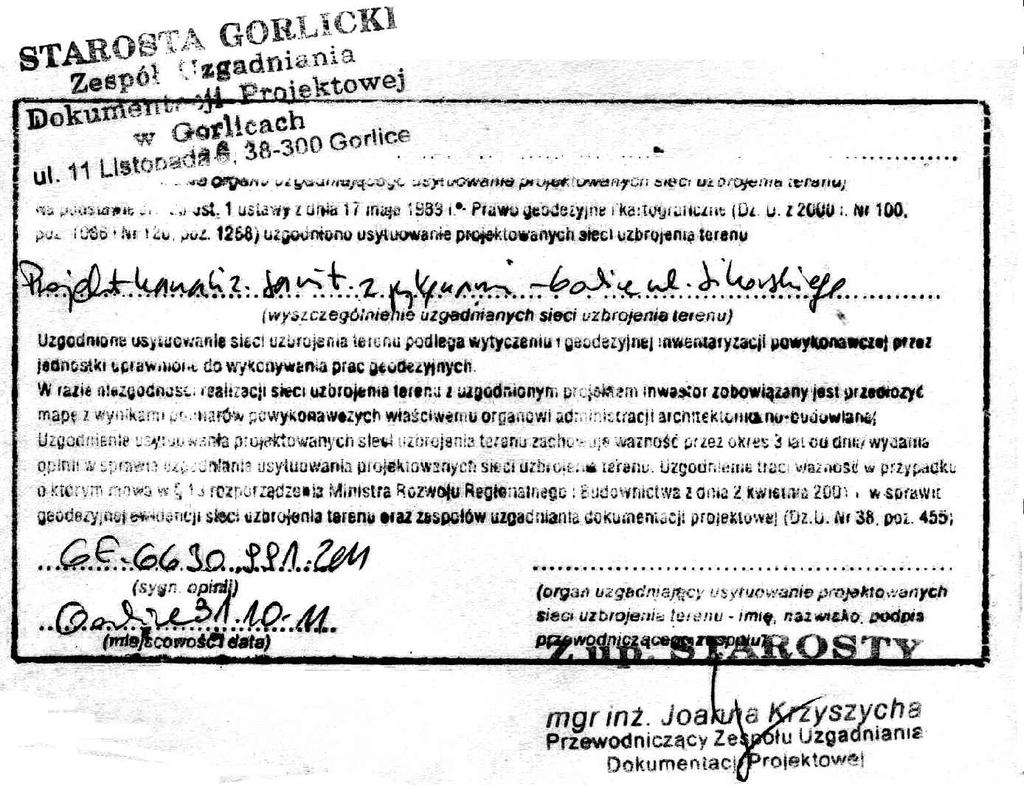 STAROSTA GORLICKI
Zespół Uzgadniania
Dokumentacji Projektowej
w Gorlicach
ul. 11 Listopada 6, 38-300 Gorlice
organu uzgadniającego usytuowanie projektowanych sieci uzbrojenia terenu)
na podstawie ust. 1 ustawy z dnia 17 maja 1989 r. Prawo geodezyjne i kartograficzne (Dz. U. z 2000 r. Nr 100,
poz. 1086 i Nr 120, poz. 1268) uzgodniono usytuowanie projektowanych sieci uzbrojenia terenu
Projekt kanaliz. sanit. z ul. Sikorskiego
(wyszczególnienie uzgadnianych sieci uzbrojenia terenu)
Uzgodnione usytuowanie sieci uzbrojenia terenu podlega wytyczeniu i geodezyjnej inwentaryzacji powykonawczej przez
jednostki uprawnione do wykonywania prac geodezyjnych.
W razie niezgodności realizacji sieci uzbrojenia terenu z uzgodnionym projektem inwestor zobowiązany jest przedłożyć
mapę z wynikami pomiarów powykonawczych właściwemu organowi administracji architektoniczno-budowlanej
Uzgodnienie usytuowania projektowanych sieci uzbrojenia terenu zachowuje ważność przez okres 3 lat od dnia wydania
opinii w sprawie uzgodniania usytuowania projektowanych sieci uzbrojenia terenu. Uzgodnienie traci ważność w przypadku
o którym mowa w § 13 rozporządzenia Ministra Rozwoju Regionalnego i Budownictwa z dnia 2 kwietnia 2001 r. w sprawie
geodezyjnej ewidencji sieci uzbrojenia terenu oraz zespołów uzgadniania dokumentacji projektowej (Dz.U. Nr 38, poz. 455)
GE-6630.991.2011
(sygn. opinii)
Gorlice 31.10.11
(miejscowość i data)
(organ uzgadniający usytuowanie projektowanych
sieci uzbrojenia terenu - imię, nazwisko, podpis
przewodniczącego zespołu)
Z up. STAROSTY
mgr inż. Joanna Krzyszycha
Przewodniczący Zespołu Uzgadniania
Dokumentacji Projektowej